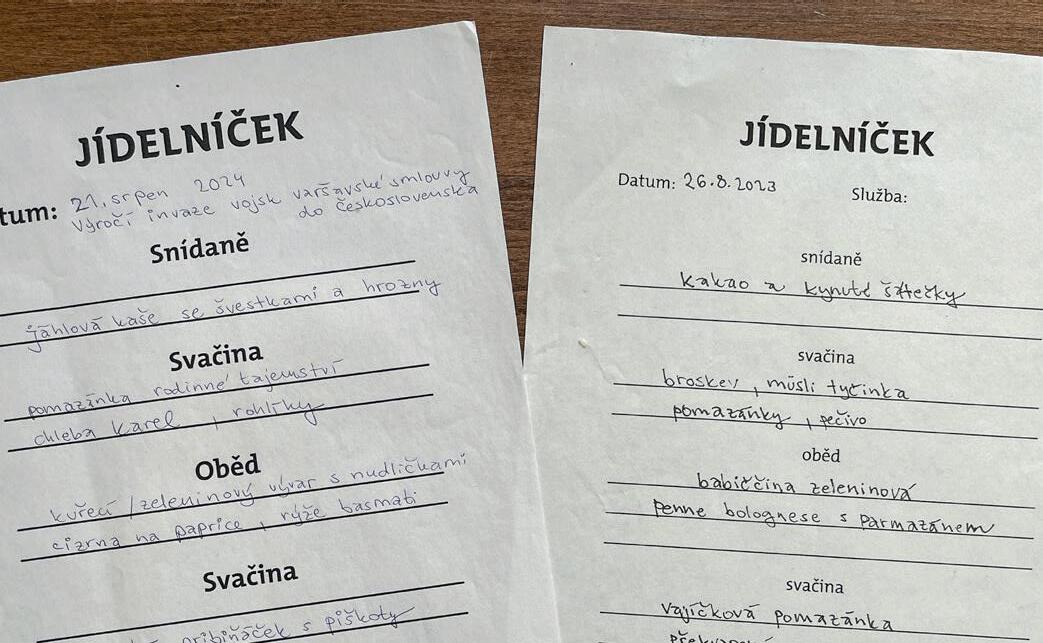 JÍDELNÍČEK
tum: 21. srpen 2024
Výročí invaze vojsk varšavské smlouvy
do Československa
Snídaně
jáhlová kaše se švestkami a hrozny
Svačina
pomazánka rodinné tajemství
chleba Karel, rohlíky
Oběd
kuřecí/zeleninový vývar s nudličkami
cizrna na paprice, rýže basmati
Svačina
pribiňáček s piškoty
JÍDELNÍČEK
Datum: 26.8.2023 Služba:
snídaně
kakao a kynuté šátečky
svačina
broskev, müsli tyčinka
pomazánky, pečivo
oběd
babiččina zeleninová
penne bolognese s parmazánem
svačina
vajíčková pomazánka